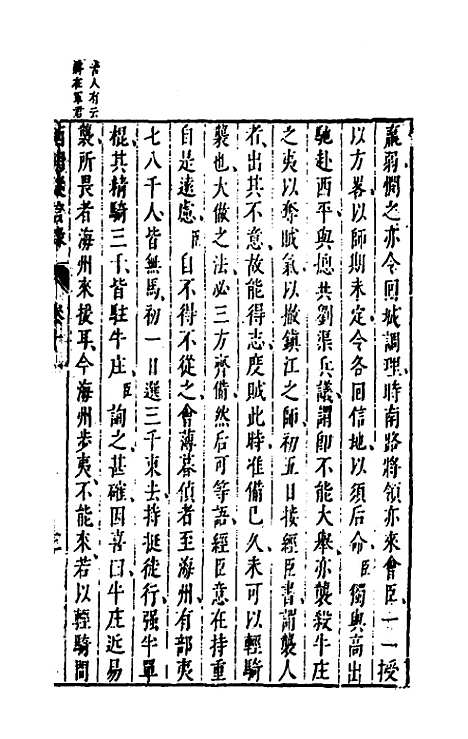 羸弱憫之亦令回城調理時南路將領亦來會臣一一授
以方畧以師期未定令各回信地以須后命臣獨與高出
馳赴西平與總兵劉渠兵議謂即不能大舉亦襲殺牛庄
之夷以奪賊氣以撤鎮江之師初五日接經臣書謂襲人
者出其不意故能得志度賊此時准備已久未可以輕騎
襲也大做之法必三方齊備然后可等語經臣意在持重
自是遠慮臣自不得不從之會薄暮偵者至海州有部夷
七八千人皆無馬初一日選三千東去持挺徒行强半單
棍其精騎三千皆駐牛庄臣詢之甚確因喜曰牛庄近易
襲所畏者海州來援耳今海州步夷不能來若以輕騎間
昔人有云
將在軍君
卷十